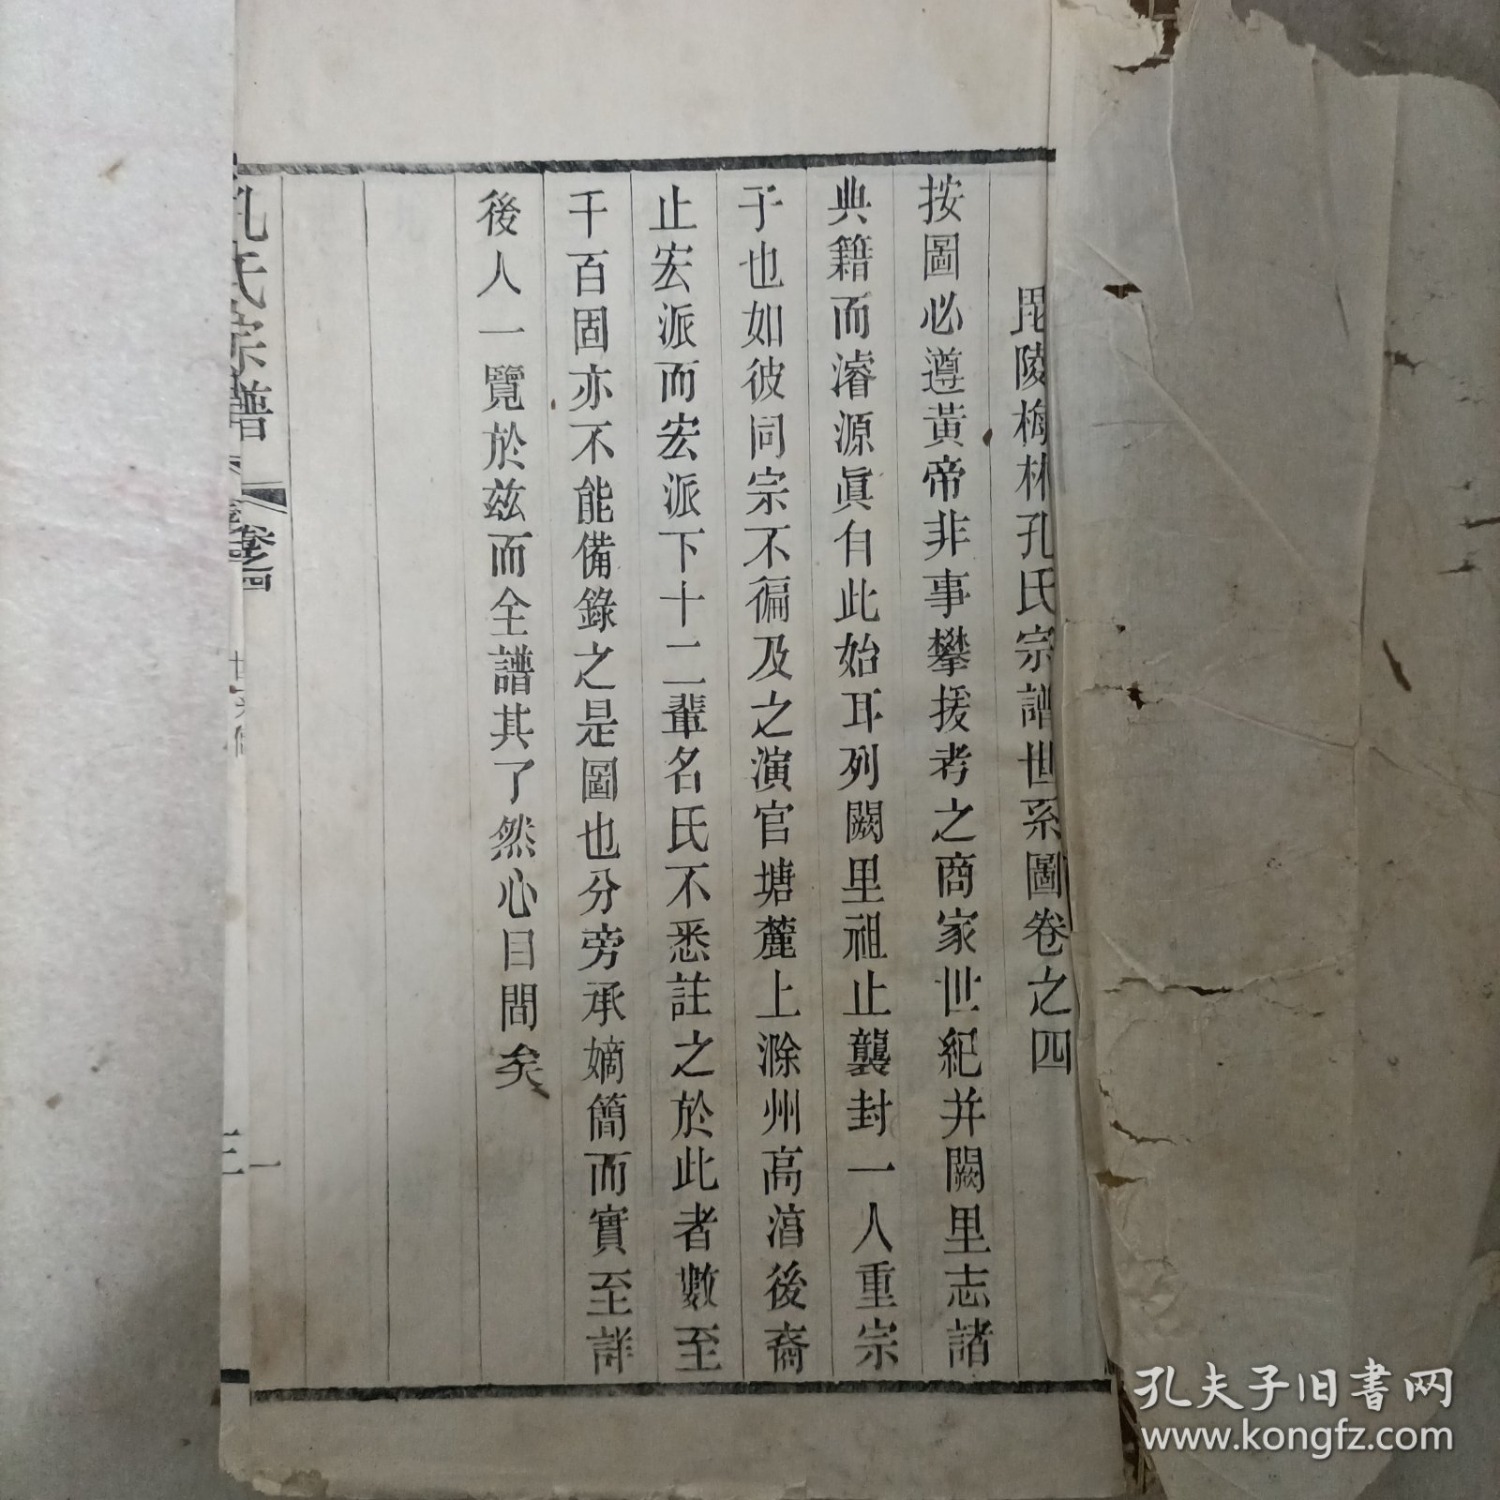 毘陵梅林孔氏宗譜世系圖卷之四
按圖必遵黃帝非事攀援考之商家世紀并闕里志諸
典籍而濬源眞自此始耳列闕里祖止襲封一人重宗
子也如彼同宗不徧及之演官塘麓上滁州高湻後裔
止宏派而宏派下十二輩名氏不悉註之於此者數至
千百固亦不能備錄之是圖也分旁承嫡簡而實至詳
後人一覽於兹而全譜其了然心目間矣
孔氏宗譜
卷之四
一
孔夫子旧書网
www.kongfz.com